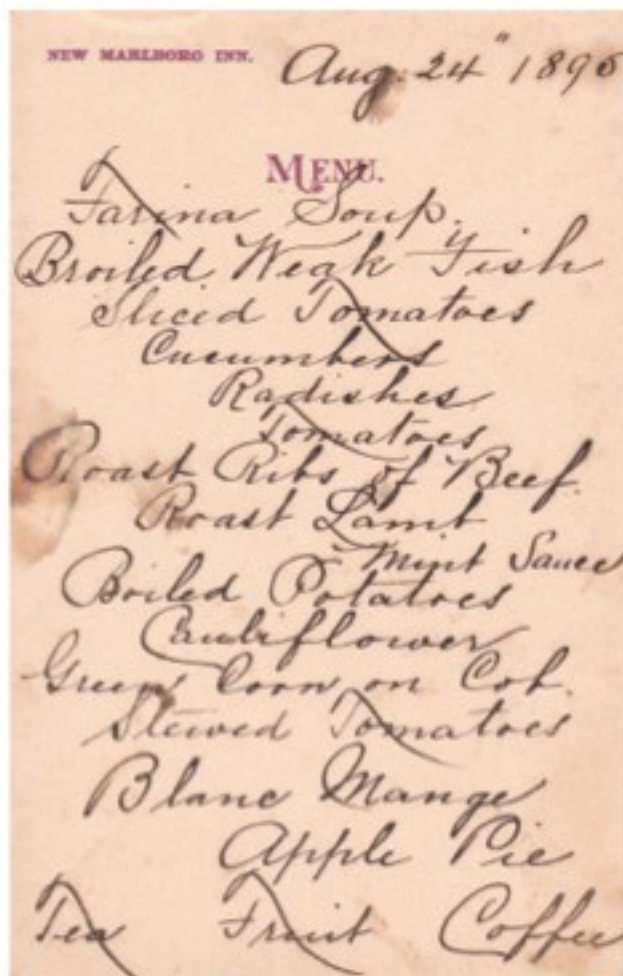 NEW MARLBORO INN.
Aug. 24" 1895
MENU.
Farina Soup.
Broiled Weak Fish
Sliced Tomatoes
Cucumbers
Radishes
Tomatoes
Roast Ribs of Beef.
Roast Lamb
Mint Sauce
Boiled Potatoes
Cauliflower
Green Corn on Cob.
Stewed Tomatoes
Blanc Mange
Apple Pie
Tea Fruit Coffee